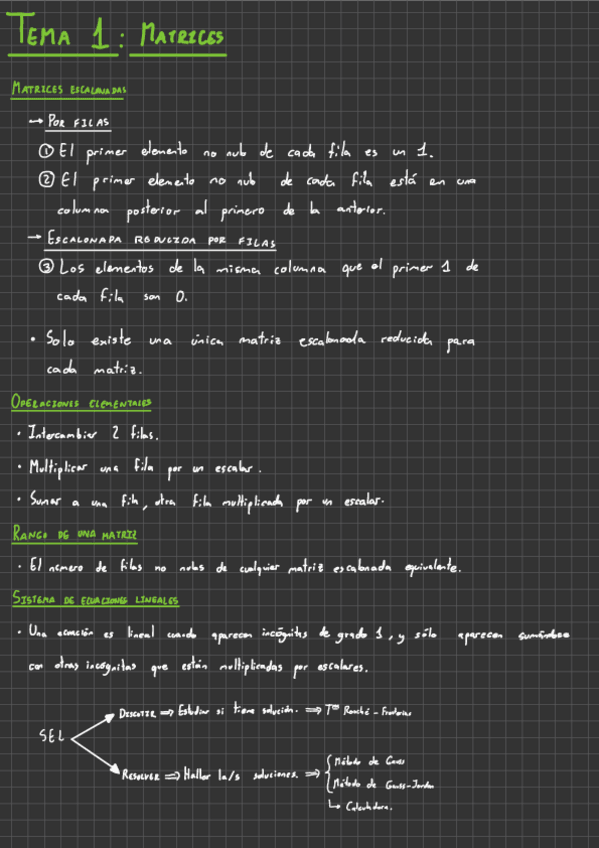 TEMA 1: MATRICES
MATRICES ESCALONADAS
→ POR FILAS
① El primer elemento no nulo de cada fila es un 1.
② El primer elemento no nulo de cada fila está en una
columna posterior al primero de la anterior.
→ ESCALONADA REDUCIDA POR FILAS
③ Los elementos de la misma columna que el primer 1 de
cada fila son 0.
• Solo existe una única matriz escalonada reducida para
cada matriz.
OPERACIONES ELEMENTALES
• Intercambiar 2 filas.
• Multiplicar una fila por un escalar.
• Sumar a una fila, otra fila multiplicada por un escalar.
RANGO DE UNA MATRIZ
• El número de filas no nulas de cualquier matriz escalonada equivalente.
SISTEMA DE ECUACIONES LINEALES
• Una ecuación es lineal cuando aparecen incógnitas de grado 1, y sólo aparecen sumándose
con otras incógnitas que están multiplicadas por escalares.
SEL
DISCUTIR ⇒ Estudiar si tiene solución. ⇒ Tma Rouché-Frobenius
RESOLVER ⇒ Hallar la/s soluciones. ⇒
Método de Gauss
Método de Gauss-Jordan
↳ Calculadora.